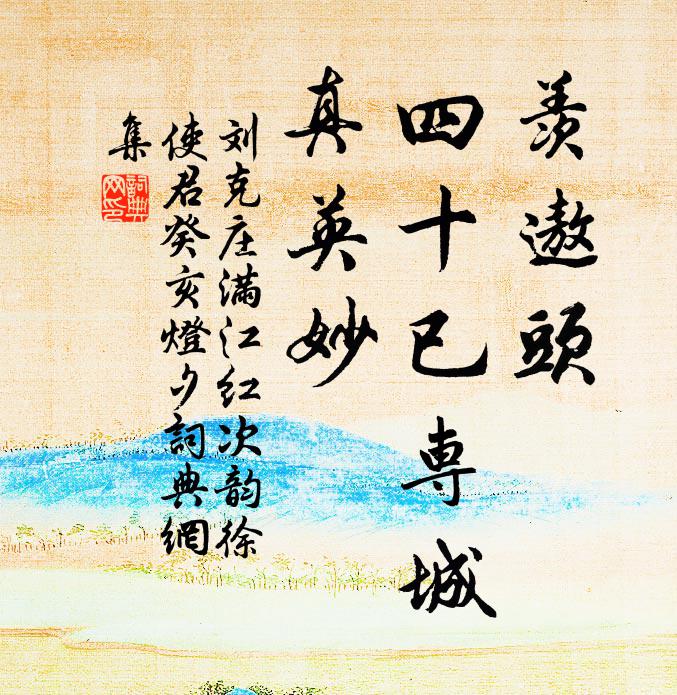 羨遨頭
四十已專城
真英妙
刘克庄满江红次韵徐
使君癸亥燈夕詞典網
集
詞典
网印